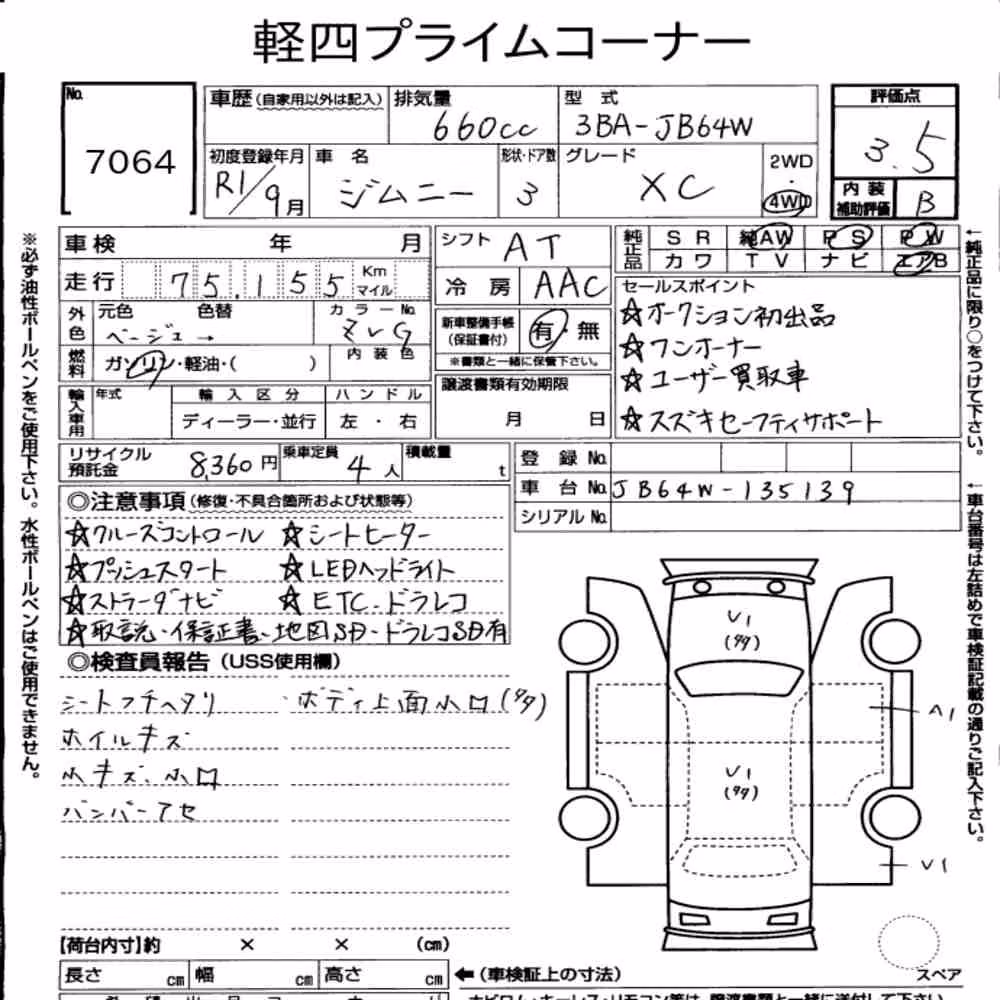 軽四プライムコーナー
No. 7064
車歴(自家用以外は記入) 排気量 660cc 型式 3BA-JB64W 評価点 3.5
初度登録年月 R1/9月 車名 ジムニー 形状・ドア数 3 グレード XC 2WD・4WD 内装補助評価 B
車検 年 月 シフト AT 純正品 SR 純AW PS PW
カワ TV ナビ エアB
走行 75,155 Km マイル 冷房 AAC
セールスポイント
外色 元色 ベージュ→ 色替 カラーNo. ZVG
新車整備手帳(保証書付) 有・無
※書類と一緒に保管下さい。
燃料 ガソリン・軽油・( ) 内装色
☆オークション初出品
☆ワンオーナー
☆ユーザー買取車
☆スズキセーフティサポート
譲渡書類有効期限
月 日
輸入車用 年式 輸入区分 ハンドル
ディーラー・並行 左・右
リサイクル預託金 8,360円 乗車定員 4人 積載量 t
登録No.
車台No. JB64W-135139
シリアルNo.
◎注意事項(修復・不具合箇所および状態等)
☆クルーズコントロール ☆シートヒーター
☆プッシュスタート ☆LEDヘッドライト
☆ストラーダナビ ☆ETC・ドラレコ
☆取説・保証書・地図SD・ドラレコSD有
◎検査員報告(USS使用欄)
シートフチヘタリ ボディ上面小口(タタ)
ホイルキズ
小キズ、小口
バンパーアセ
U1
(タタ)
A1
U1
(タタ)
U1
スペア
【荷台内寸】約 × × (cm)
長さ cm 幅 cm 高さ cm ←(車検証上の寸法)
※必ず油性ボールペンをご使用下さい。水性ボールペンはご使用できません。
←純正品に限り○をつけて下さい。
←車台番号は左詰めで車検証記載の通りご記入下さい。